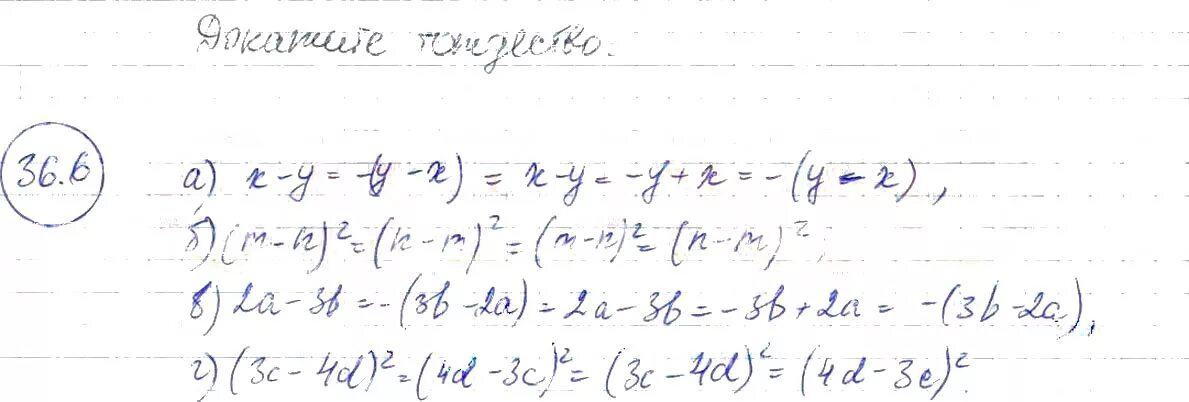 Докажите тождество.
36.6
а) x-y = -(y-x) = x-y = -y+x = -(y-x),
б) (m-n)² = (n-m)² = (m-n)² = (n-m)²
в) 2a-3b = -(3b-2a) = 2a-3b = -3b+2a = -(3b-2a),
г) (3c-4d)² = (4d-3c)² = (3c-4d)² = (4d-3c)².